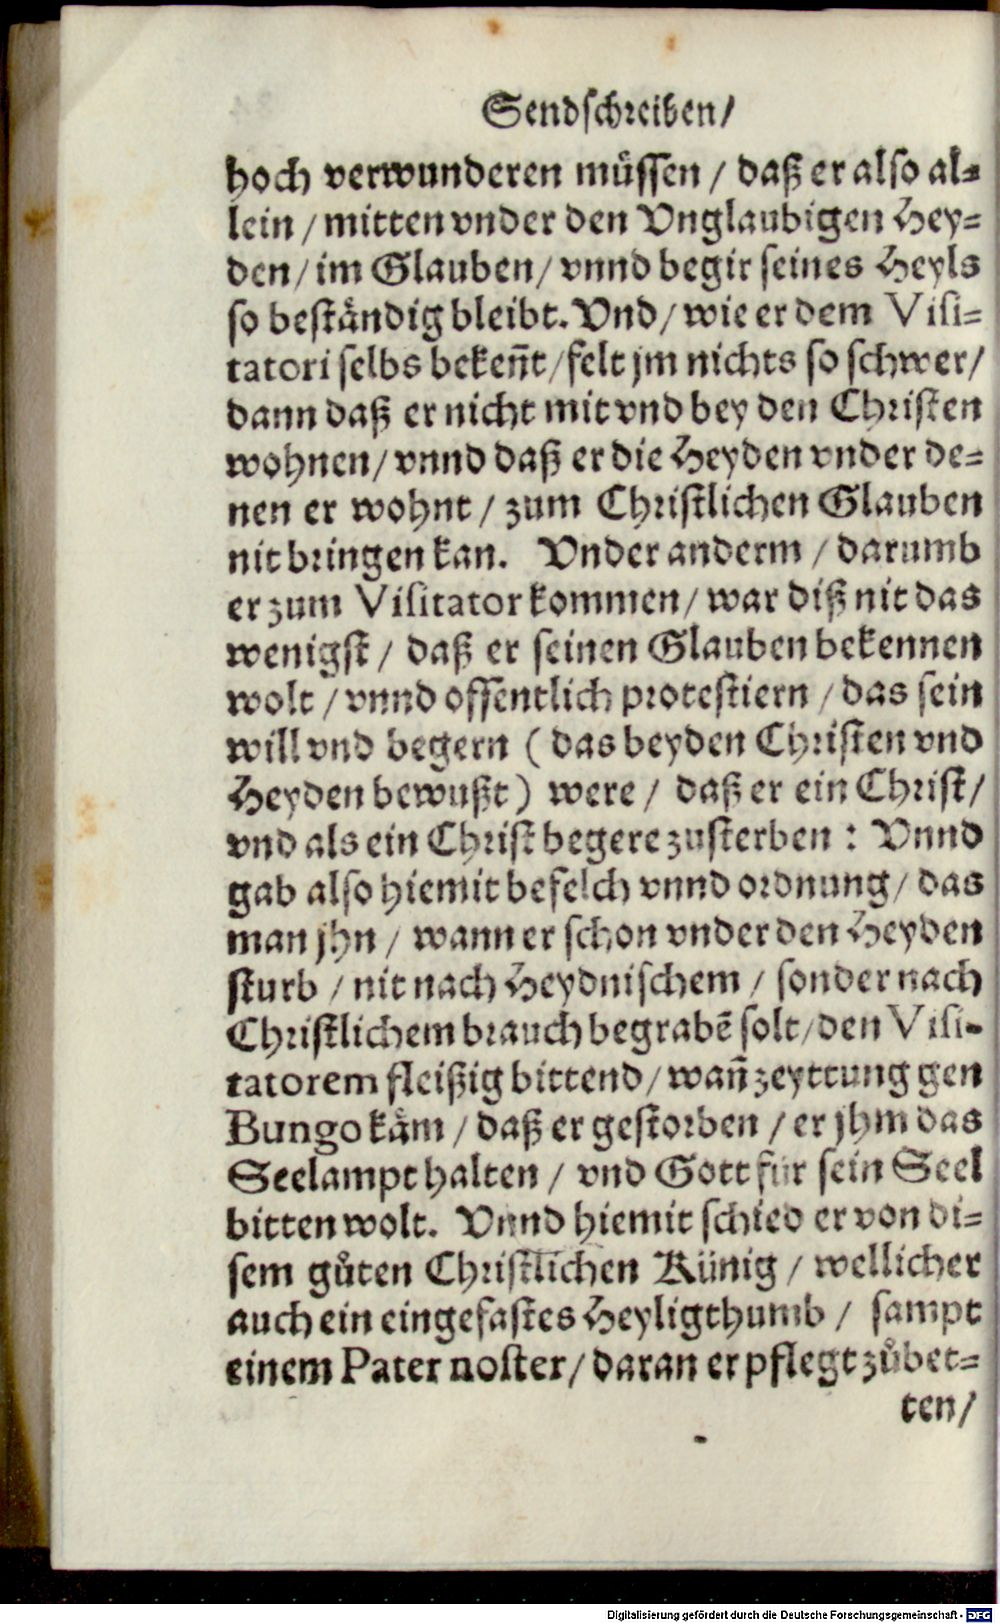 Sendschreiben/
hoch verwunderen müssen / daß er also al⸗
lein / mitten vnder den Vnglaubigen Hey⸗
den / im Glauben / vnnd begir seines Heyls
so beståndig bleibt. Vnd / wie er dem Visi⸗
tatori selbs bekeñt / felt jm nichts so schwer /
dann daß er nicht mit vnd bey den Christen
wohnen / vnnd daß er die Heyden vnder de⸗
nen er wohnt / zum Christlichen Glauben
nit bringen kan. Vnder anderm / darumb
er zum Visitator kommen / war diß nit das
wenigst / daß er seinen Glauben bekennen
wolt / vnnd offentlich protestiern / das sein
will vnd begern ( das beyden Christen vnd
Heyden bewußt ) were / daß er ein Christ /
vnd als ein Christ begere zusterben : Vnnd
gab also hiemit befelch vnnd ordnung / das
man jhn / wann er schon vnder den Heyden
sturb / nit nach Heydnischem / sonder nach
Christlichem brauch begrabẽ solt / den Visi⸗
tatorem fleißig bittend / wañ zeyttung gen
Bungo kåm / daß er gestorben / er jhm das
Seelampt halten / vnd Gott für sein Seel
bitten wolt. Vnnd hiemit schied er von di⸗
sem gůten Christlichen Künig / wellicher
auch ein eingefastes Heyligthumb / sampt
einem Pater noster / daran er pflegt zůbet⸗
ten /
Digitalisierung gefördert durch die Deutsche Forschungsgemeinschaft - DFG